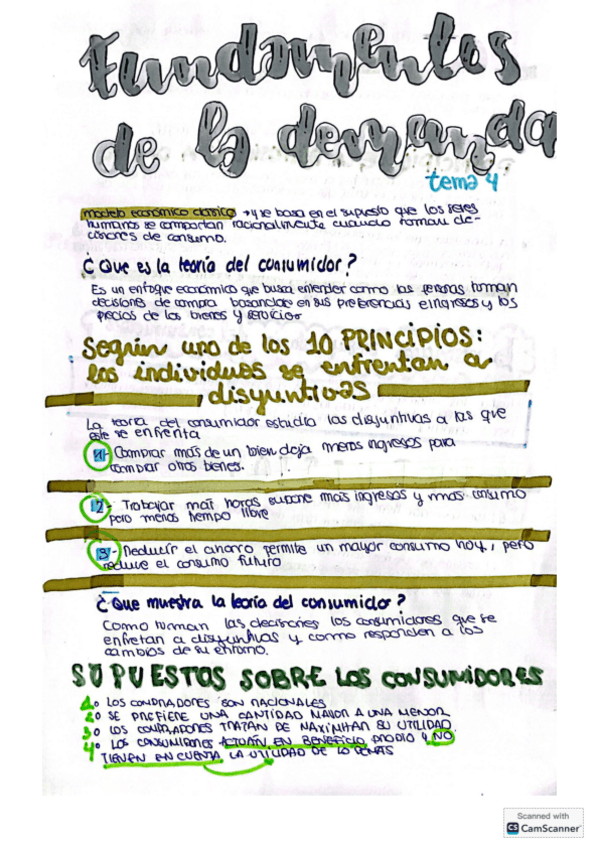 Fundamentos
de la demanda
tema 4
modelo económico clásico → y se basa en el supuesto que los seres
humanos se comportan racionalmente cuando toman de-
cisiones de consumo.
¿Que es la teoría del consumidor?
Es un enfoque económico que busca entender como las personas toman
decisiones de compra basandose en sus preferencias e ingresos y los
precios de los bienes y servicios
Según uno de los 10 PRINCIPIOS:
los individuos se enfrentan a
disyuntivas
La teoría del consumidor estudia las disyuntivas a las que
este se enfrenta
1- Comprar más de un bien deja menos ingresos para
comprar otros bienes.
2- Trabajar más horas supone más ingresos y más consumo
pero menos tiempo libre
3- Reducir el ahorro permite un mayor consumo hoy, pero
reduce el consumo futuro
¿Que muestra la teoría del consumidor?
Como toman las decisiones los consumidores que se
enfretan a disyuntivas y como responden a los
cambios de su entorno.
SUPUESTOS SOBRE LOS CONSUMIDORES
1o LOS COMPRADORES SON RACIONALES
2o SE PREFIERE UNA CANTIDAD MAYOR A UNA MENOR
3o LOS COMPRADORES TRATAN DE MAXIMIZAR SU UTILIDAD
4o LOS CONSUMIDORES ACTUAN EN BENEFICIO PROPIO Y NO
TIENEN EN CUENTA LA UTILIDAD DE LO DEMAS
Scanned with
CS CamScanner